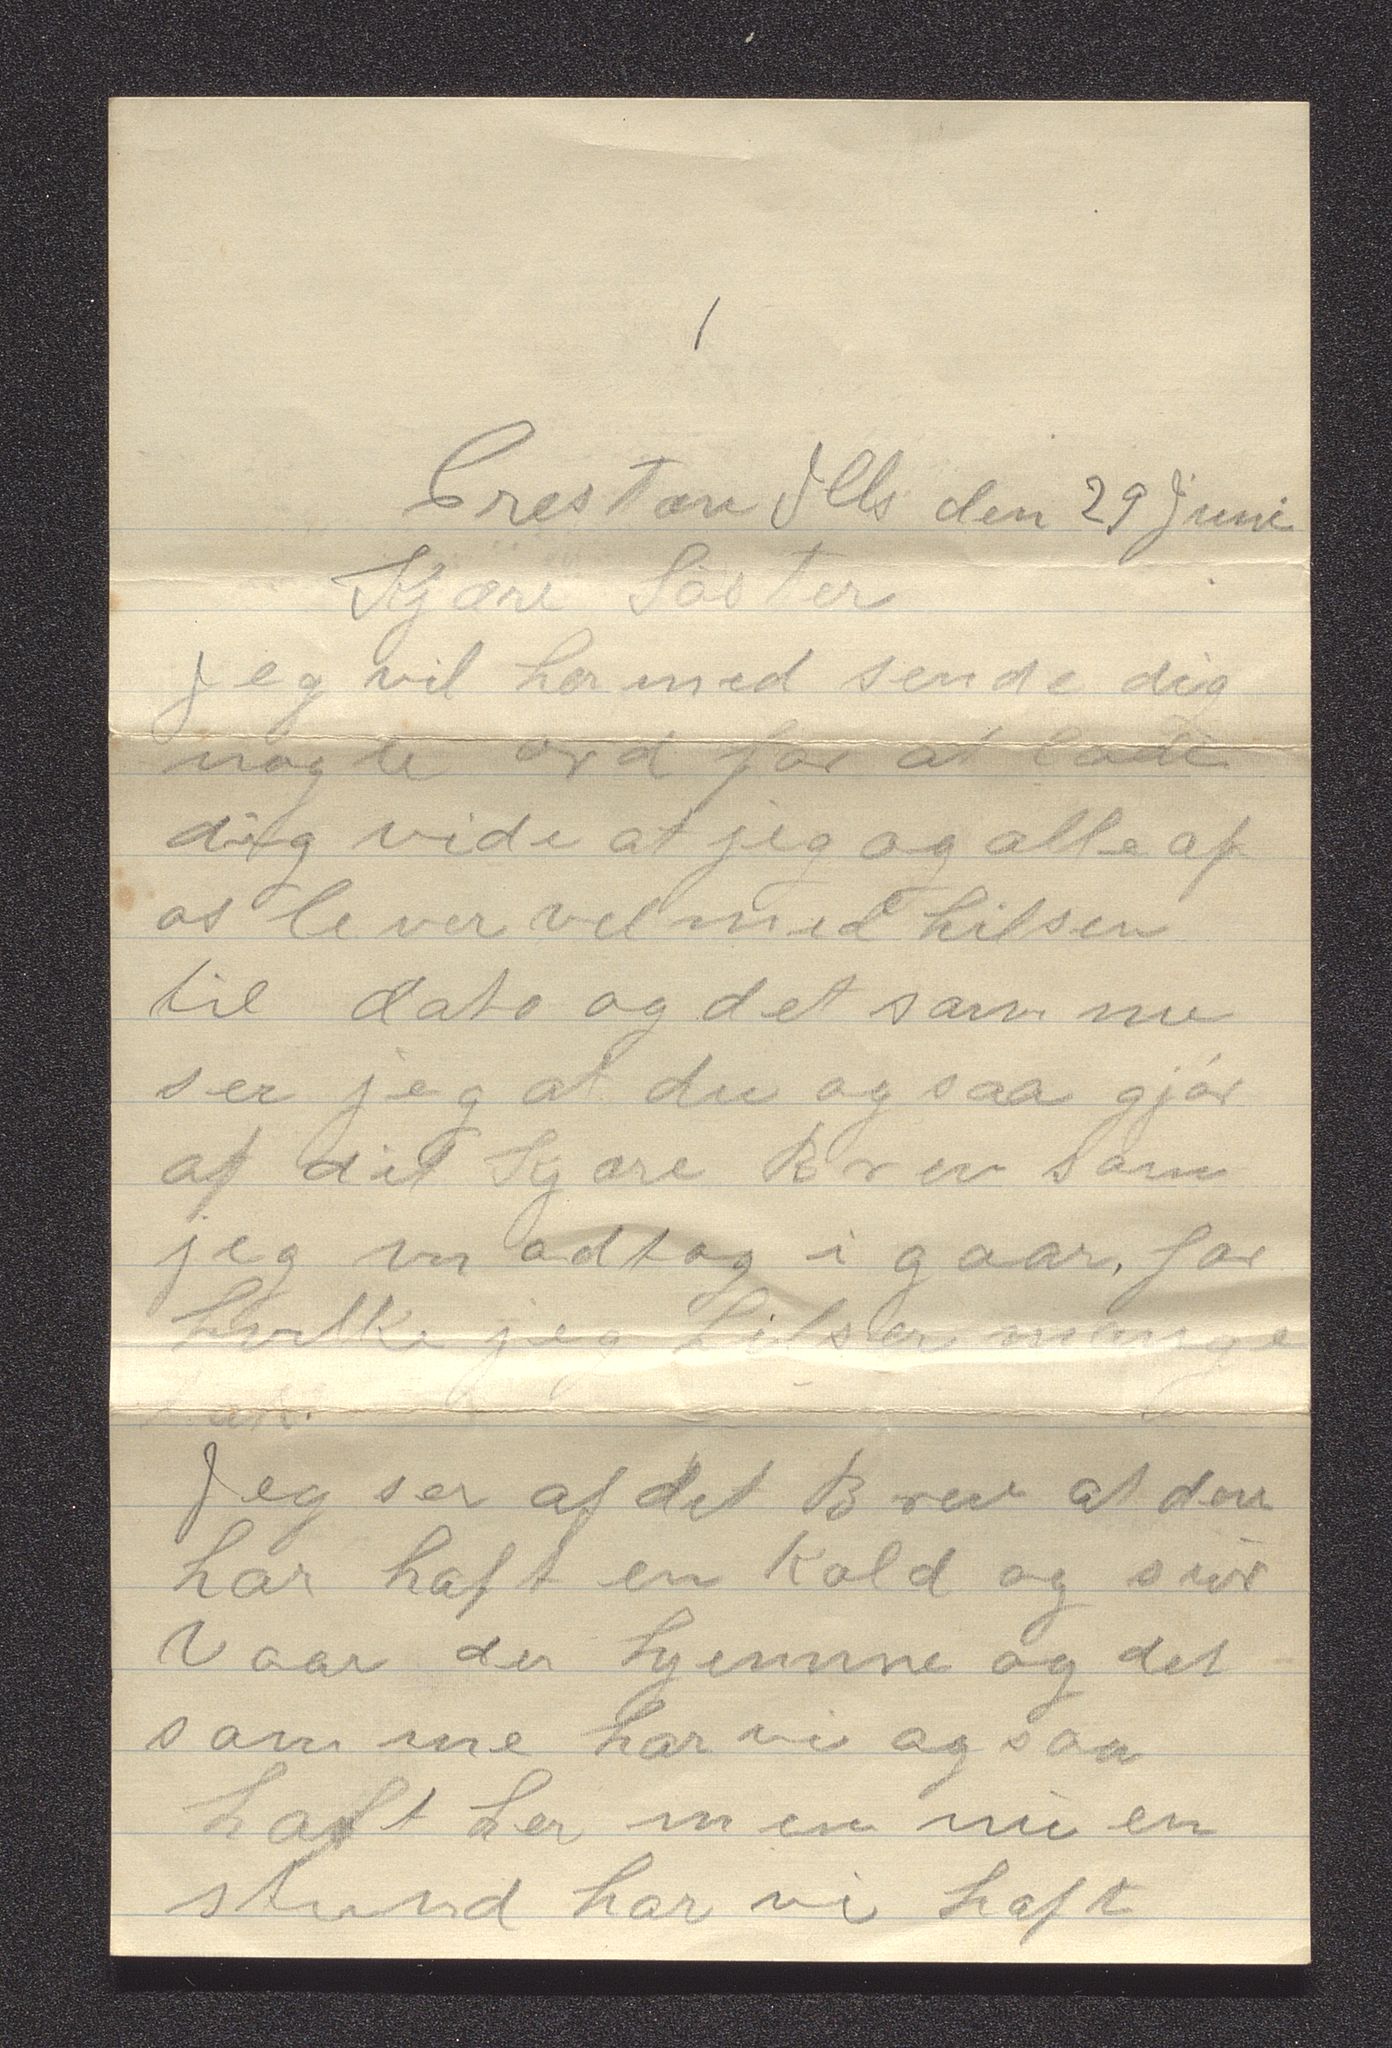 1
Creston Ills den 29 Juni
Kjære Søster
Jeg vil hermed sende dig
nogle ord for at lade
dig vide at jeg og alle af
os lever vel med hilsen
til dato og det samme
ser jeg at du ogsaa gjør
af dit Kjære Brev som
jeg modtog i gaar. for
hvilke jeg hilser mange
tak.
Jeg ser af det Brev at den
har haft en Kold og suur
Vaar der hjemme og det
samme har vi ogsaa
haft her men nu en
stund har vi haft